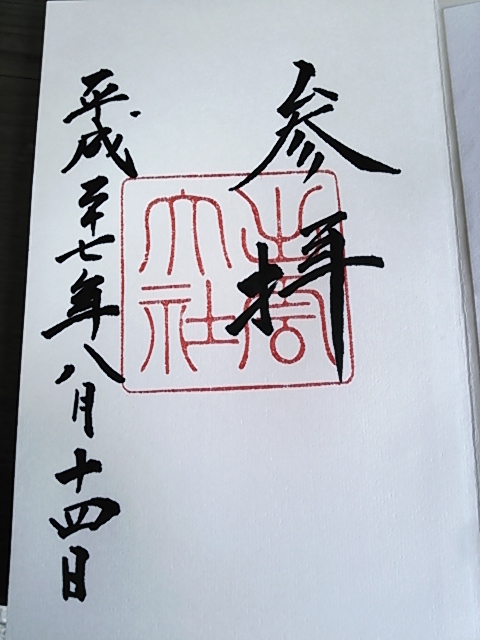 参拝
出雲大社
平成二十七年八月十四日